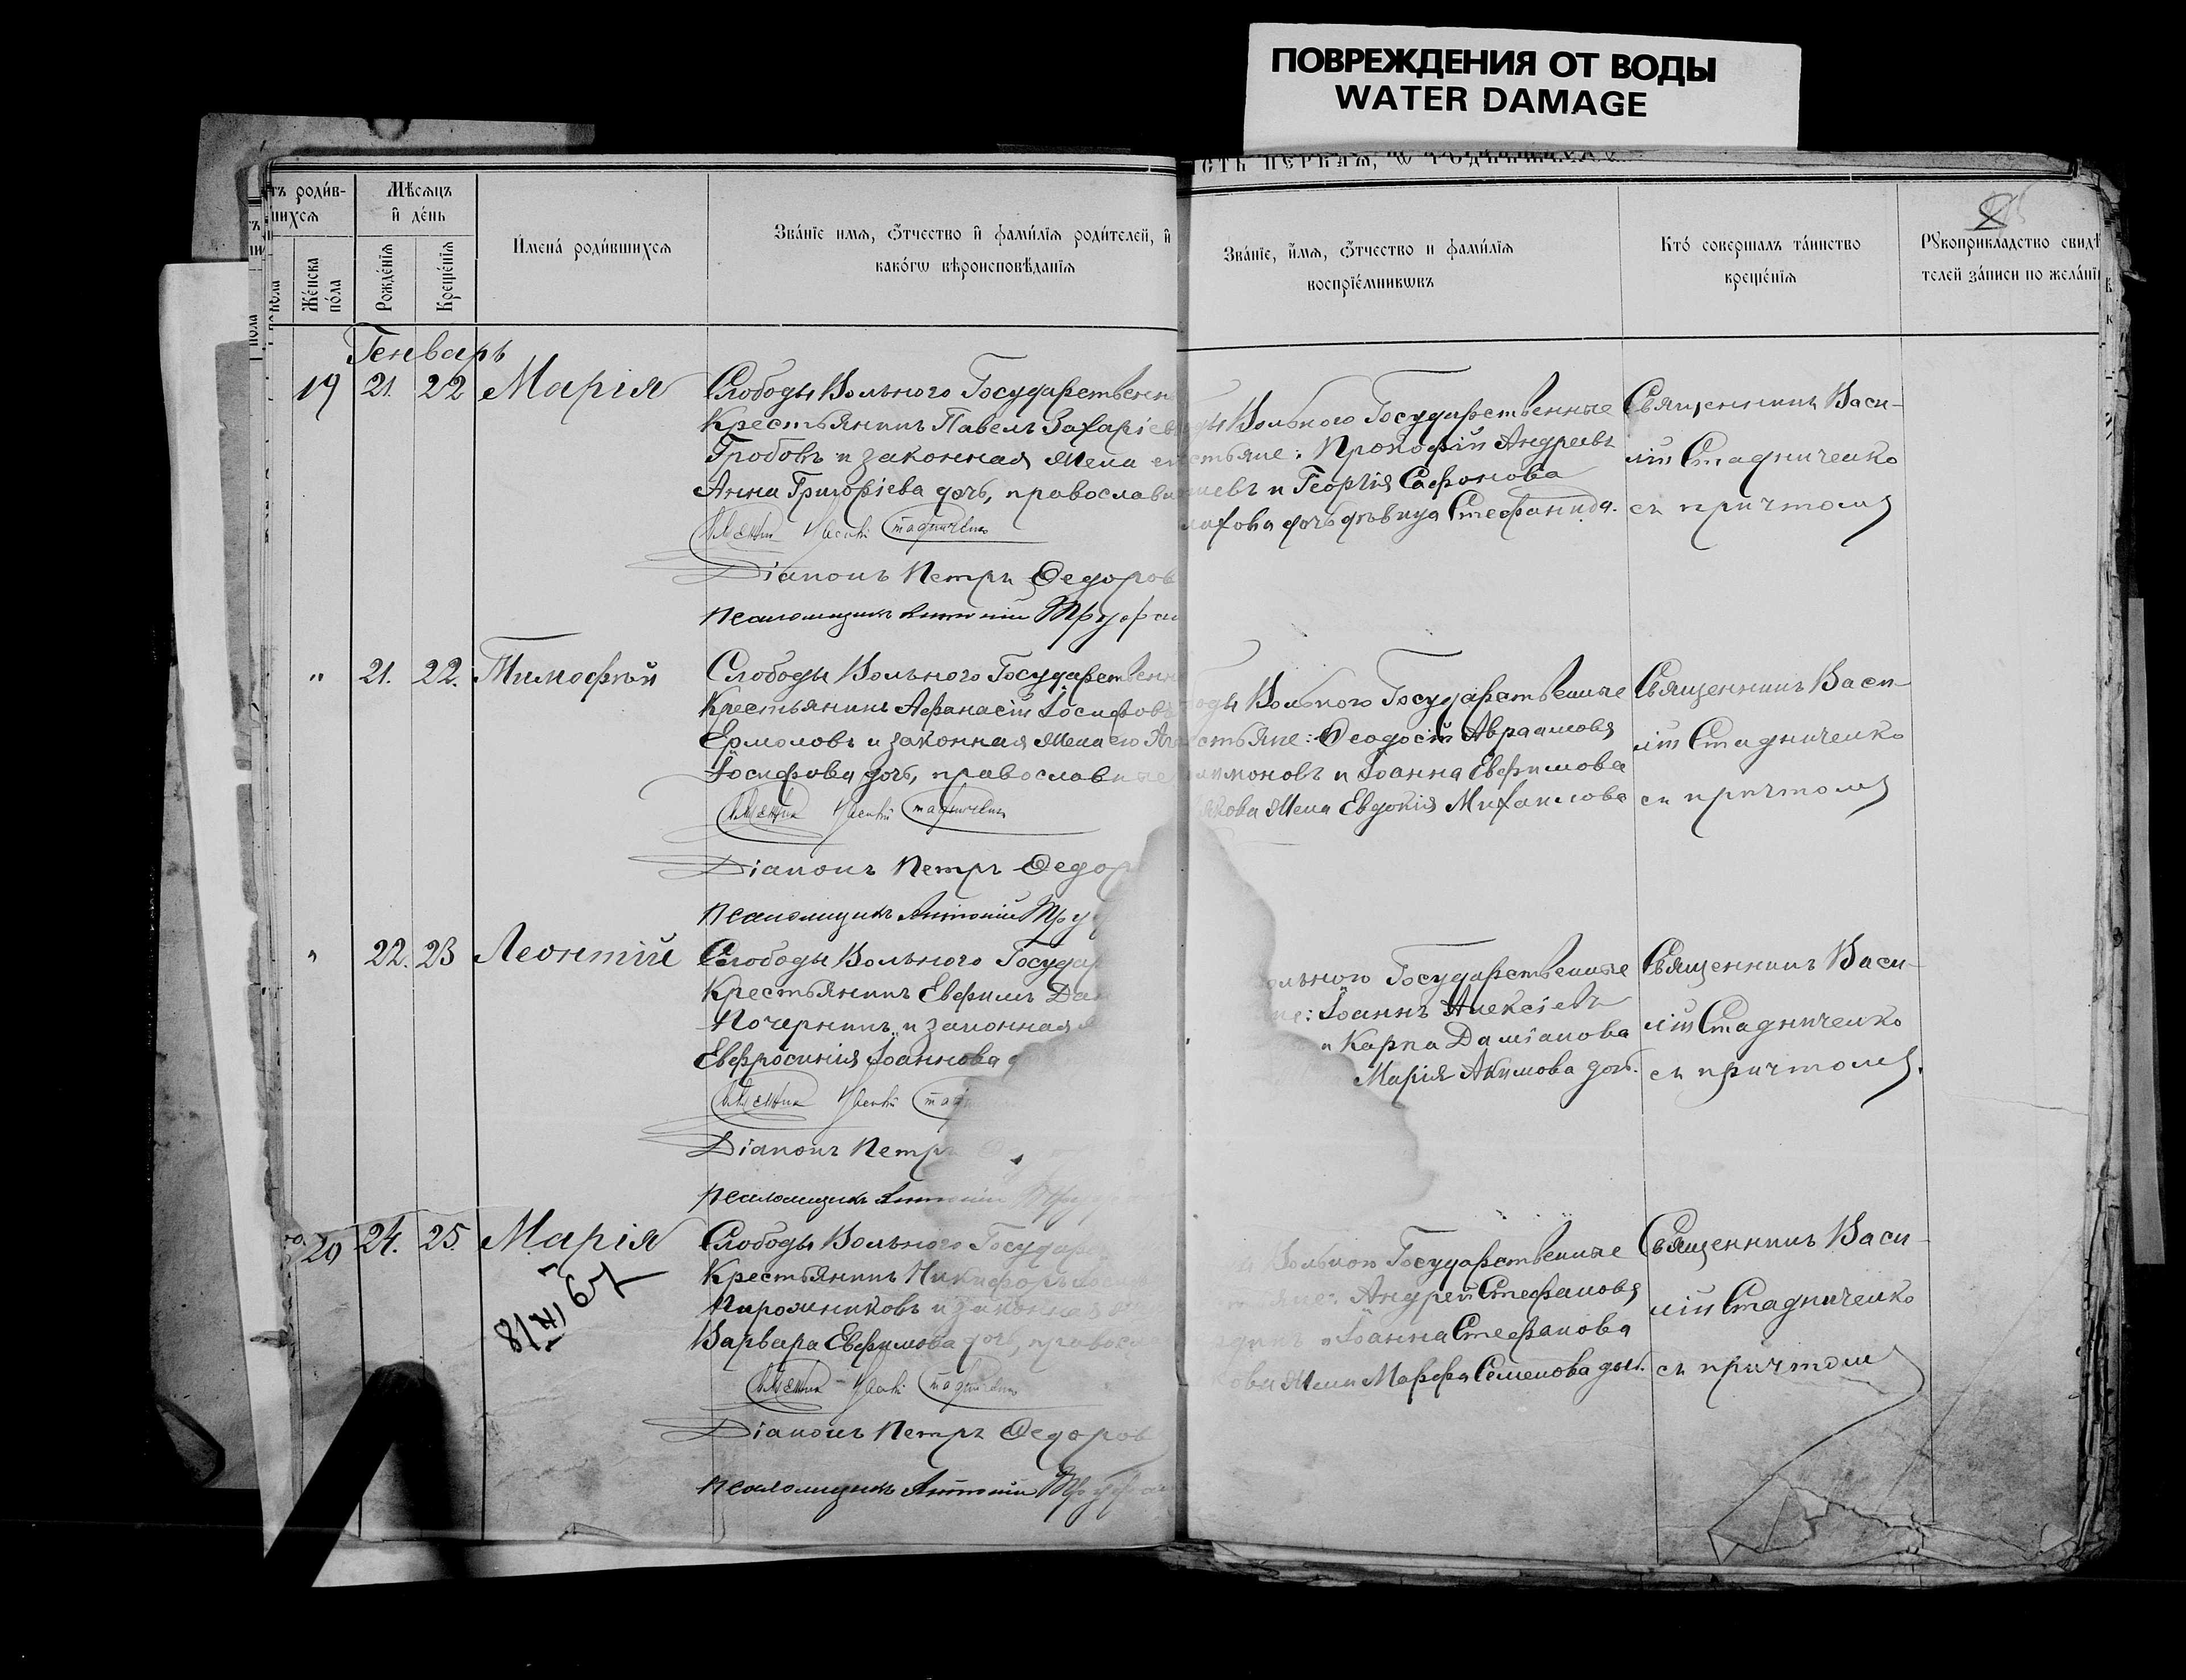 ПОВРЕЖДЕНИЯ ОТ ВОДЫ
WATER DAMAGE
Мѣсяцъ и день
Женска пола
Рожденія
Крещенія
Имена родившихся
Званіе имя, отчество и фамилія родителей, и
какогѡ вѣроисповѣданія
Званіе, имя, отчество и фамилія
воспріемниковъ
Кто совершалъ таинство
крещенія
Рукоприкладство свидѣ
телей записи по желанію
Генварь
19 21. 22 Марія
Слободы Вольного Государственн
Крестьянинъ Павелъ Захаріев
Гробовъ и законная жена его
Анна Григоріева дочь, православн
Діаконъ Петръ Ѳедоров
Псаломщикъ Антоній
ды Вольного Государственные
стьяне: Прокофій Андреевъ
и Георгія Сафонова
дочь дѣвица Стефанида.
Священникъ Васи-
лій Стадниченко
съ причтомъ
" 21. 22. Тимофѣй
Слободы Вольного Государственн
Крестьянинъ Афанасій Іосифовъ
Ермоловъ и законная жена его
Іосифова дочь, православные
Діаконъ Петръ Ѳедор
Псаломщикъ Антоній
оды Вольного Государственные
стьяне: Ѳеодосій Авраамовъ
и Іоанна Евфимова
жена Евдокія Михаилова
Священникъ Васи-
лій Стадниченко
съ причтомъ
" 22. 23 Леонтій
Слободы Вольного Государ
Крестьянинъ Евфимъ Дам
Почернинъ и законная
Евфросинія Іоаннова
Діаконъ Петръ
Псаломщикъ Антоній
ольного Государственные
Іоаннъ Алексіевъ
и Карпа Даміанова
Марія Акимова дочь.
Священникъ Васи-
лій Стадниченко
съ причтомъ.
20 24. 25. Марія
Слободы Вольного Государ
Крестьянинъ Никифоръ
Пирожниковъ и законная
Варвара Евфимова дочь, правосл
Діаконъ Петръ Ѳедоров
Псаломщикъ Антоній
Вольного Государственные
Андрей Стефановъ
и Іоанна Стефанова
жена Марфа Семенова дочь.
Священникъ Васи-
лій Стадниченко
съ причтомъ